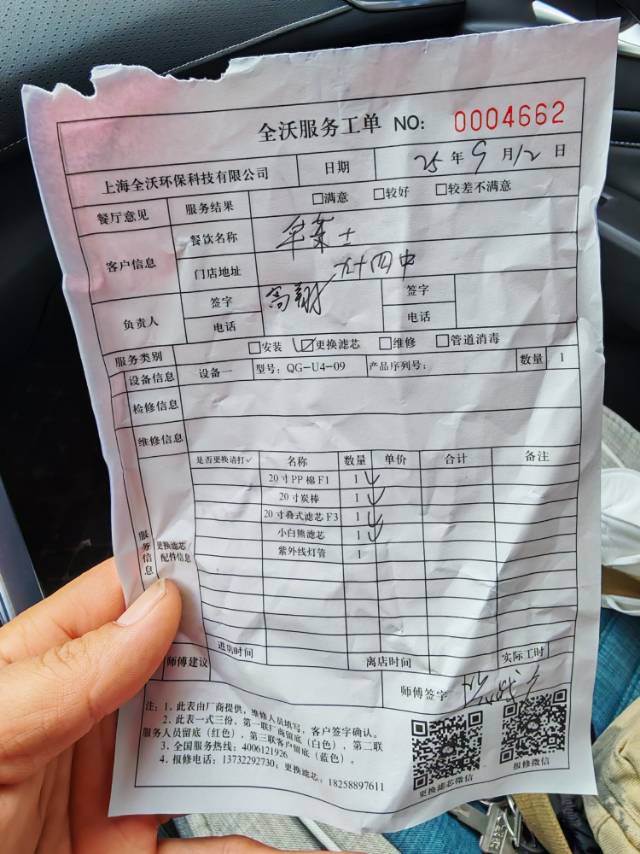 全沃服务工单 NO: 0004662
上海全沃环保科技有限公司 日期 25 年 9 月 12 日
餐厅意见 服务结果 □满意 □较好 □较差不满意
客户信息 餐饮名称
门店地址 九十四中
负责人 签字 签字
电话 电话
服务类别 □安装 ☑更换滤芯 □维修 □管道消毒
设备信息 设备一 型号: QG-U4-09 产品序列号: 数量 1
检修信息
维修信息
服务信息 更换滤芯配件信息 是否更换请打✓ 名称 数量 单价 合计 备注
20寸PP棉F1 1 ✓
20寸炭棒 1 ✓
20寸叠式滤芯F3 1 ✓
小白熊滤芯 1 ✓
紫外线灯管 1
进店时间 离店时间 实际工时
师傅建议 师傅签字
注: 1. 此表由厂商提供, 维修人员填写, 客户签字确认。
2. 此表一式三份, 第一联厂商留底(白色), 第二联
服务人员留底(红色), 第三联客户留底(蓝色)。
3. 全国服务热线: 4006121926
4. 报修电话: 13732292730; 更换滤芯: 18258897611
更换滤芯微信 报修微信